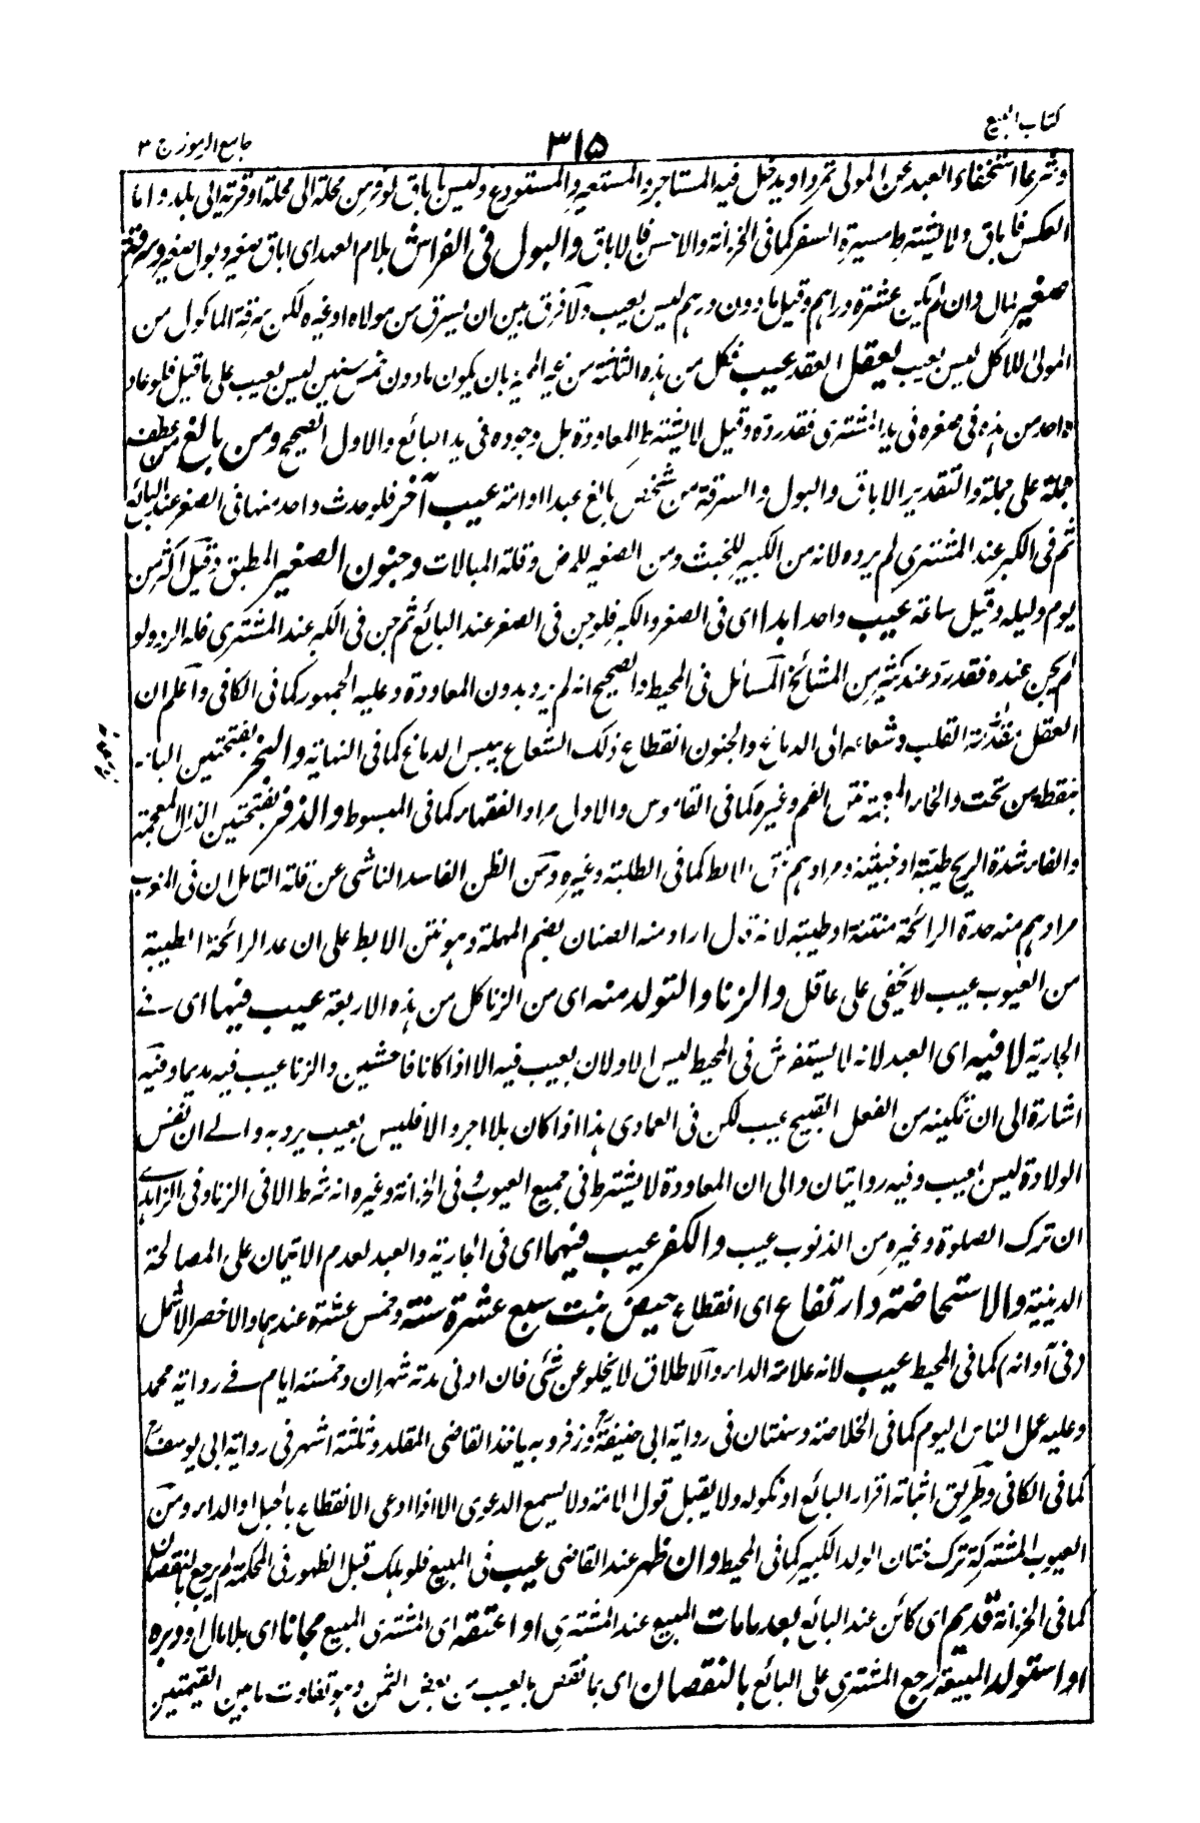 كتاب البيع
٣١٥
جامع الرموز ج ٣
وشرعا استخفاء العبد عن المولى تمردا ويدخل فيه المستاجر والمستعير والمستودع وليس باباق لو فر من محلة الى محلة او قرية الى بلد واما
العكس فاباق ولا يشترط مسيرة السفر كما في الخزانة والاحسن فالاباق والبول في الفراش بلام العهد اى اباق صغير وبول صغير وسرقة
صغير بمال وان لم يكن عشرة دراهم وقيل ما دون درهم ليس بعيب ولا فرق بين ان يسرق من مولاه او غيره لكن سرقة الماكول من
المولى للاكل ليس بعيب يعقل العقد عيب فكل من هذه الثلثة من غير المميز بان يكون ما دون خمس سنين ليس بعيب على ما قيل فلو عاد
واحد من هذه في صغره في يد المشترى فقد رده وقيل لا يشترط المعاودة بل وجوده في يد البائع والاول الصحيح ومن بالغ عطف
جملة على جملة والتقدير الاباق والبول والسرقة من شخص بالغ عبدا او امة عيب آخر فلو حدث واحد منها في الصغر عند البائع
ثم في الكبر عند المشترى لم يرده لانه من الكبير للخبث ومن الصغير للمرض وقلة المبالات وجنون الصغير المطبق وقيل اكثر من
يوم وليله وقيل ساعة عيب واحد ابدا اى في الصغر والكبر فلو جن في الصغر عند البائع ثم جن في الكبر عند المشترى فله الرد ولو
لم يجن عنده فقد رد عند كثير من المشائخ المسائل في المحيط والصحيح انه لم يرد بدون المعاودة وعليه الجمهور كما في الكافي واعلم ان
العقل معدنه القلب وشعاعه الى الدماغ والجنون انقطاع ذلك الشعاع بيبس الدماغ كما في النهاية والبخر بفتحتين الباء
بنقطة من تحت والخاء المعجمة نتن الفم وغيره كما في القاموس والاول مراد الفقهاء كما في المبسوط والذفر بفتحتين الذال المعجمة
والفاء شدة الريح طيبة او خبيثة ومرادهم نتن الابط كما في الطلبة وغيره ومن الظن الفاسد الناشى عن قلة التامل ان في المغرب
مرادهم منه حدة الرائحة منتنة او طيبة لانه قال اراد منه الصنان بضم المهملة وهو نتن الابط على ان عد الرائحة الطيبة
من العيوب عيب لا يخفى على عاقل والزنا والتولد منه اى من الزنا كل من هذه الاربعة عيب فيها اى في
الجارية لا فيه اى العبد لانه لا يستفرش في المحيط ليس الاولان بعيب فيه الا اذا كانا فاحشين والزنا عيب فيه مديما وفيه
اشارة الى ان تمكينه من الفعل القبيح عيب لكن في العمادى هذا اذا كان بلا اجر والا فليس بعيب يرد به والى ان نفس
الولادة ليس بعيب وفيه روايتان والى ان المعاودة لا يشترط في جميع العيوب وفي الخزانة وغيره انه شرط الا في الزنا وفي الزاهدى
ان ترك الصلوة وغيره من الذنوب عيب والكفر عيب فيهما اى في الجارية والعبد لعدم الائتمان على المصالحة
الدينية والاستحاضة وارتفاع اى انقطاع حيض بنت سبع عشرة سنة وخمس عشرة عندهما والاخصر الاشمل
في آوانه كما في المحيط عيب لانه علامة الداء والاطلاق لا يخلو عن شئ فان ادنى مدته شهران وخمسة ايام في رواية محمد
وعليه عمل الناس اليوم كما في الخلاصة وسنتان في رواية ابى حنيفة وزفر وبه ياخذ القاضى المقلد وثلثة اشهر في رواية ابى يوسف
كما في الكافي وطريق اثباته اقرار البائع او نكوله ولا يقبل قول الامة ولا يسمع الدعوى الا اذا ادعى الانقطاع بالحبل او الداء ومن
العيوب المشتركة ترك ختان الولد الكبير كما في المحيط وان ظهر عند القاضى عيب في المبيع فلو هلك قبل الظهور في المحكمة لم يرجع بالنقصان
كما في الخزانة قديم اى كائن عند البائع بعد ما مات المبيع عند المشترى او اعتقه اى المشترى المبيع مجانا اى بلا مال او دبره
او استولد المبيعة رجع المشترى على البائع بالنقصان اى بما نقص بالعيب من بعض الثمن وهو تفاوت ما بين القيمتين